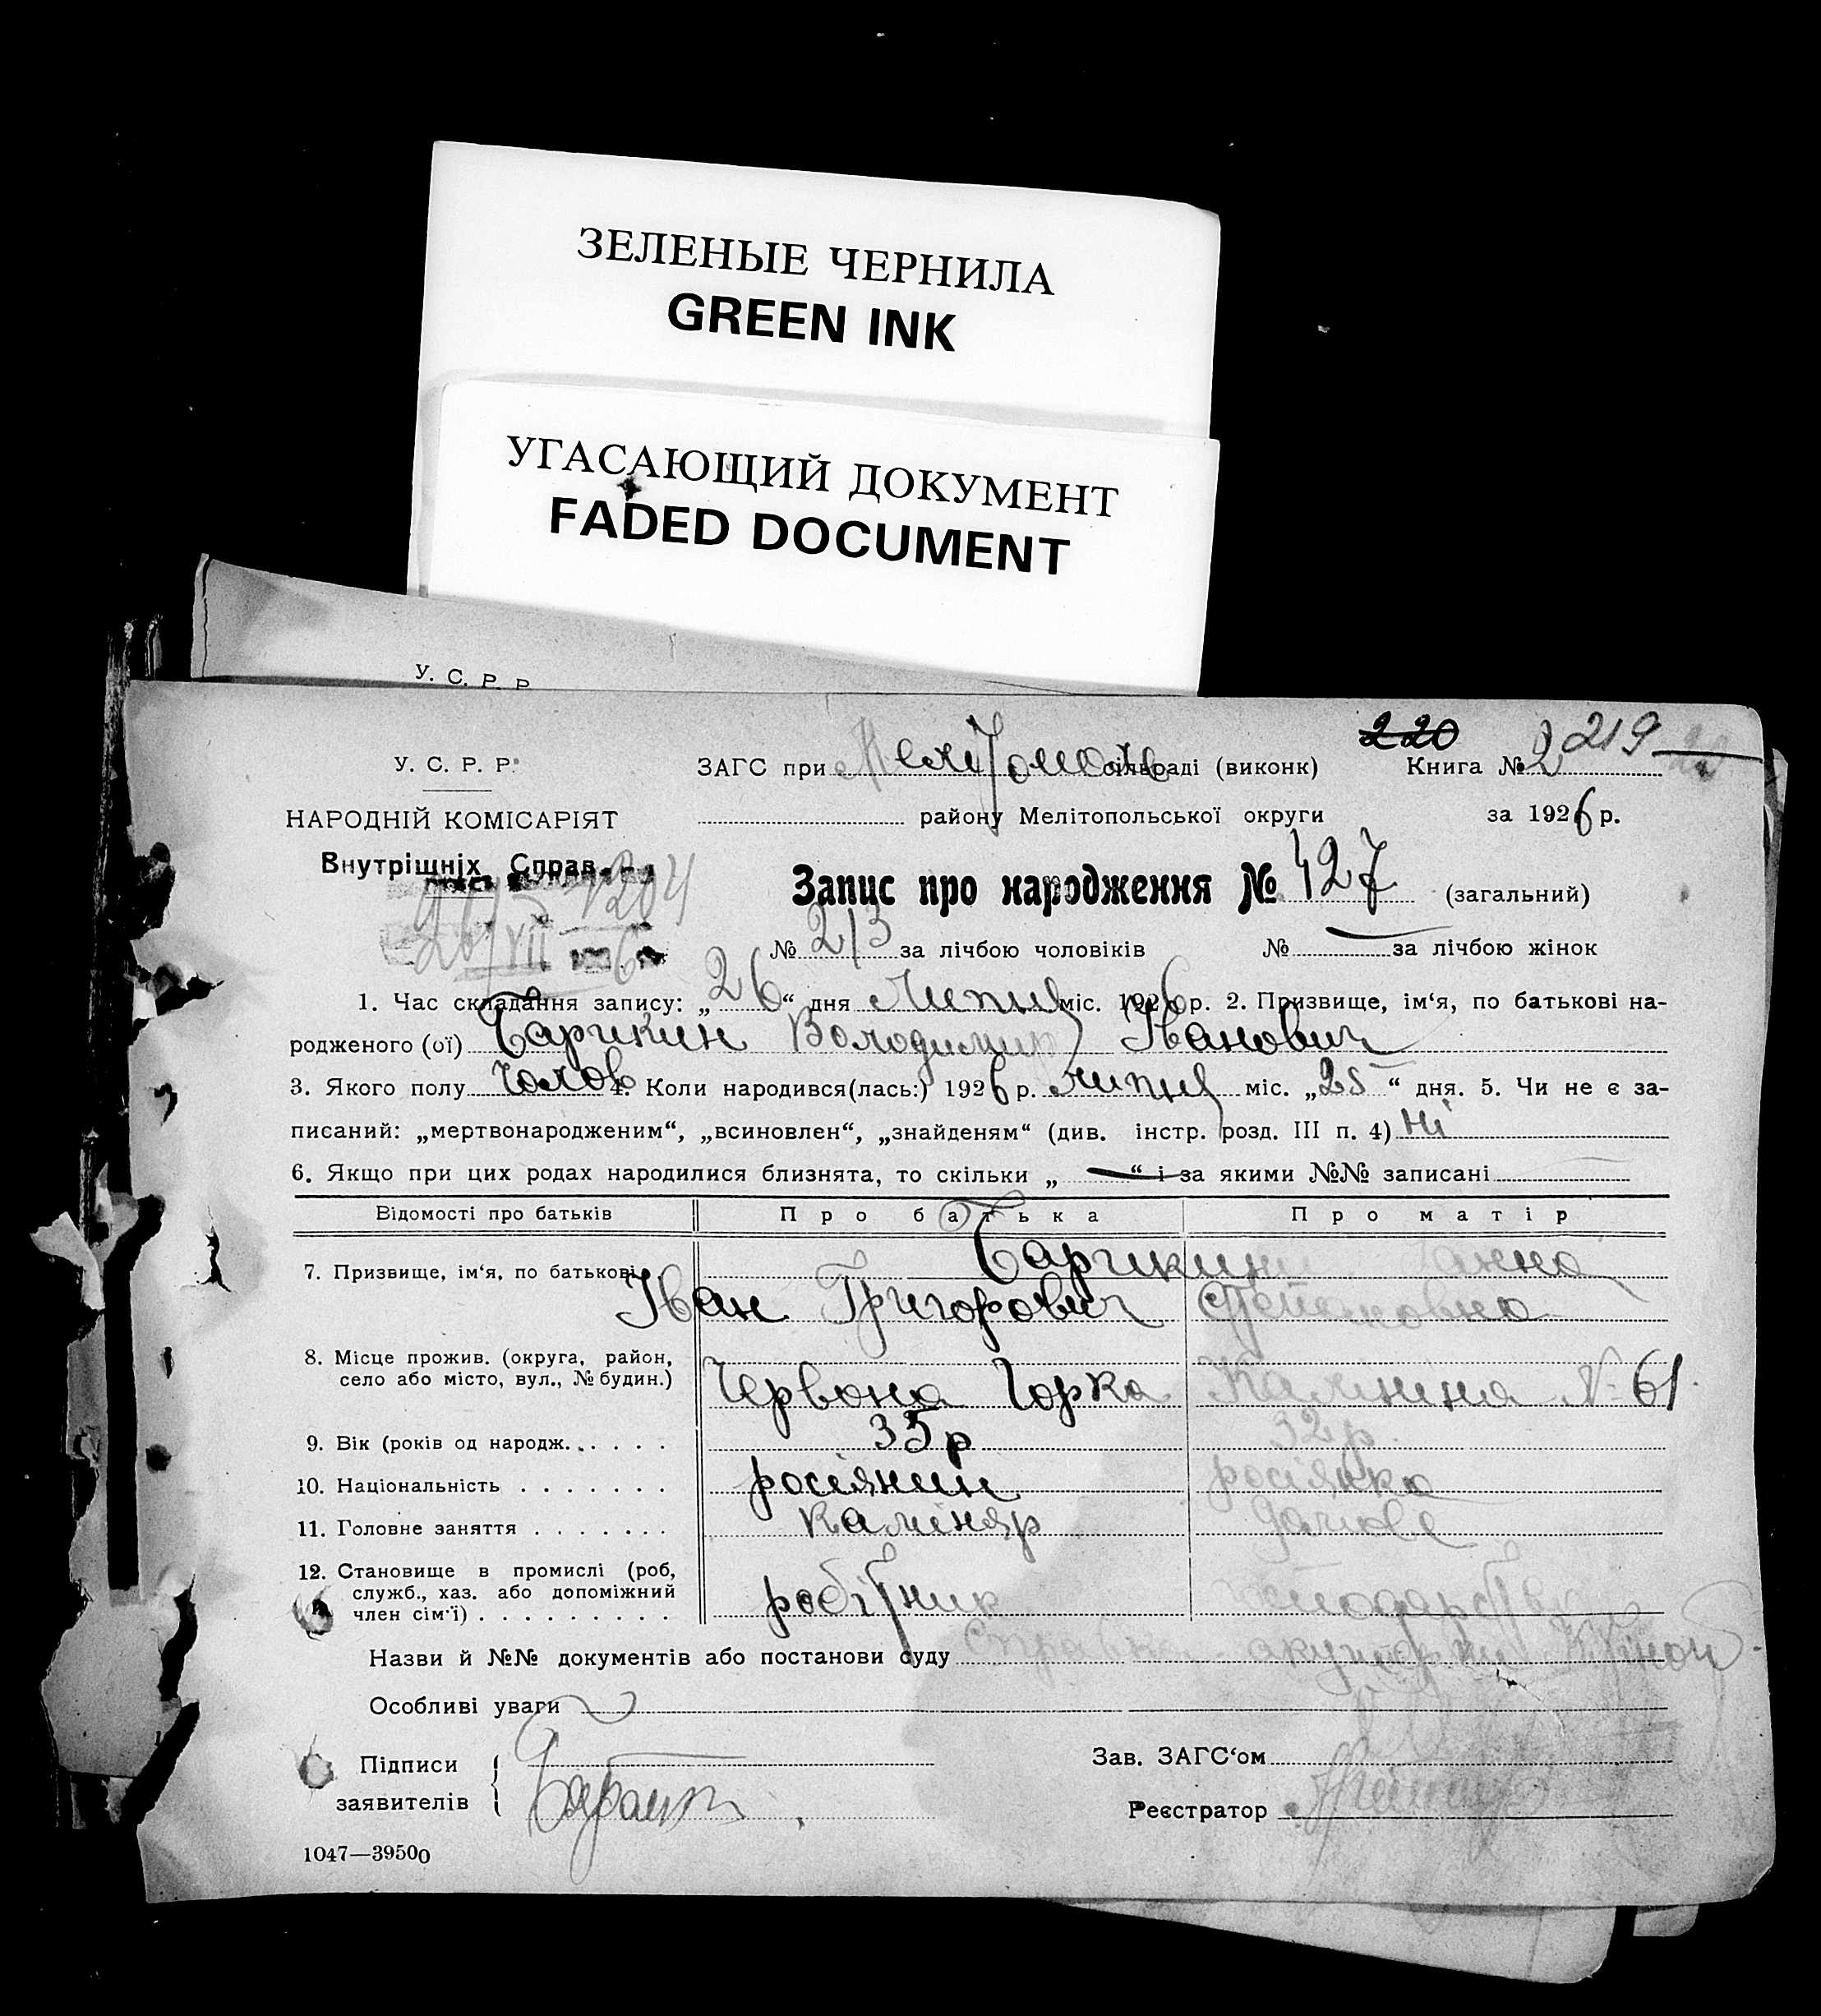 ЗЕЛЕНЫЕ ЧЕРНИЛА
GREEN INK
УГАСАЮЩИЙ ДОКУМЕНТ
FADED DOCUMENT
У. С. Р. Р.
220 219
У. С. Р. Р. ЗАГС при Мелітополь сільраді (виконк) Книга № 2
НАРОДНІЙ КОМІСАРІЯТ району Мелітопольської округи за 1926 р.
Внутрішніх Справ.
1204
Запис про народження № 427 (загальний)
26/VII 6
№ 213 за лічбою чоловіків № за лічбою жінок
1. Час складання запису: „26“ дня липця міс. 1926 р. 2. Призвище, ім‘я, по батькові на-
родженого (ої) Володимир Іванович
3. Якого полу чолов 4. Коли народився(лась:) 1926 р. липця міс. „25“ дня. 5. Чи не є за-
писаний: „мертвонародженим“, „всиновлен“, „знайденям“ (див. інстр. розд. III п. 4) Ні
6. Якщо при цих родах народилися близнята, то скільки „ — “ і за якими №№ записані
Відомості про батьків Про батька Про матір
7. Призвище, ім‘я, по батькові Ганна
Іван Григорович Степановна
8. Місце прожив. (округа, район,
село або місто, вул., № будин.) Червона Горка Калинина № 61
9. Вік (років од народж. 35 р 32 р.
10. Національність росіянин росіянка
11. Головне заняття каміняр домове
12. Становище в промислі (роб,
служб., хаз. або допоміжний
член сім‘ї) робітник господарство
Назви й №№ документів або постанови суду Справка акушерки
Особливі уваги
Підписи
заявителів
Зав. ЗАГС‘ом
Реєстратор
1047—39500